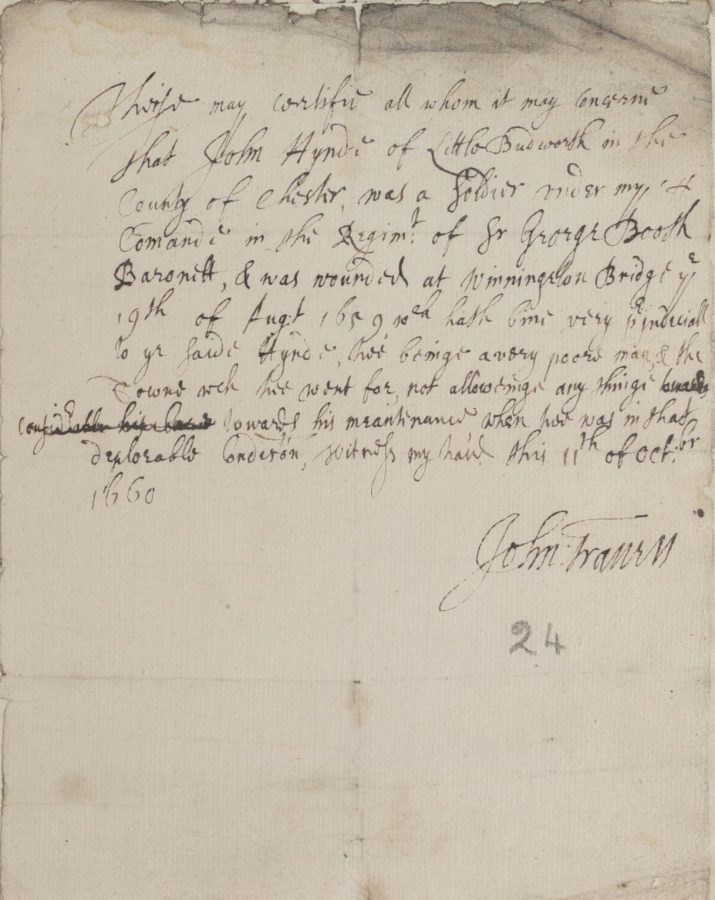 Theise may certifie all whom it may Concerne
that John Hynde of Little Budworth in the
County of Chester, was a Soldier under my
Comande in the Regimt. of Sr George Booth
Baronett, & was wounded at Winnington Bridge ye
19th of Augt 1659 wch hath bine very preiudiciall
to ye saide Hynde, hee beinge a very poore man, & the
Towne wch hee went for, not alloweinge any thinge
towards his meantenance when hee was in that
deplorable Condition, witness my hand this 11th of Octbr
1660
John:
24